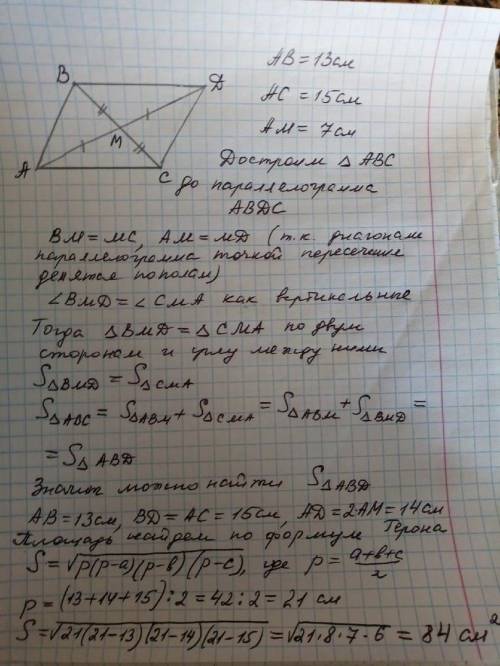 B
D
M
A
C
AB = 13см
AC = 15см
AM = 7см
Достроим △ ABC
до параллелограмма
ABDC
BM = MC, AM = MD (т.к. диагонали
параллелограмма точкой пересечения
делятся пополам)
∠BMD = ∠CMA как вертикальные
Тогда △BMD = △CMA по двум
сторонам и углу между ними
S△BMD = S△CMA
S△ABC = S△ABM + S△CMA = S△ABM + S△BMD =
= S△ABD
Значит можно найти S△ABD
AB = 13см, BD = AC = 15см, AD = 2AM = 14см
Площадь найдем по формуле Герона
S = √p(p-a)(p-b)(p-c), где p = (a+b+c)/2
p = (13+14+15):2 = 42:2 = 21 см
S = √21(21-13)(21-14)(21-15) = √21·8·7·6 = 84 см²